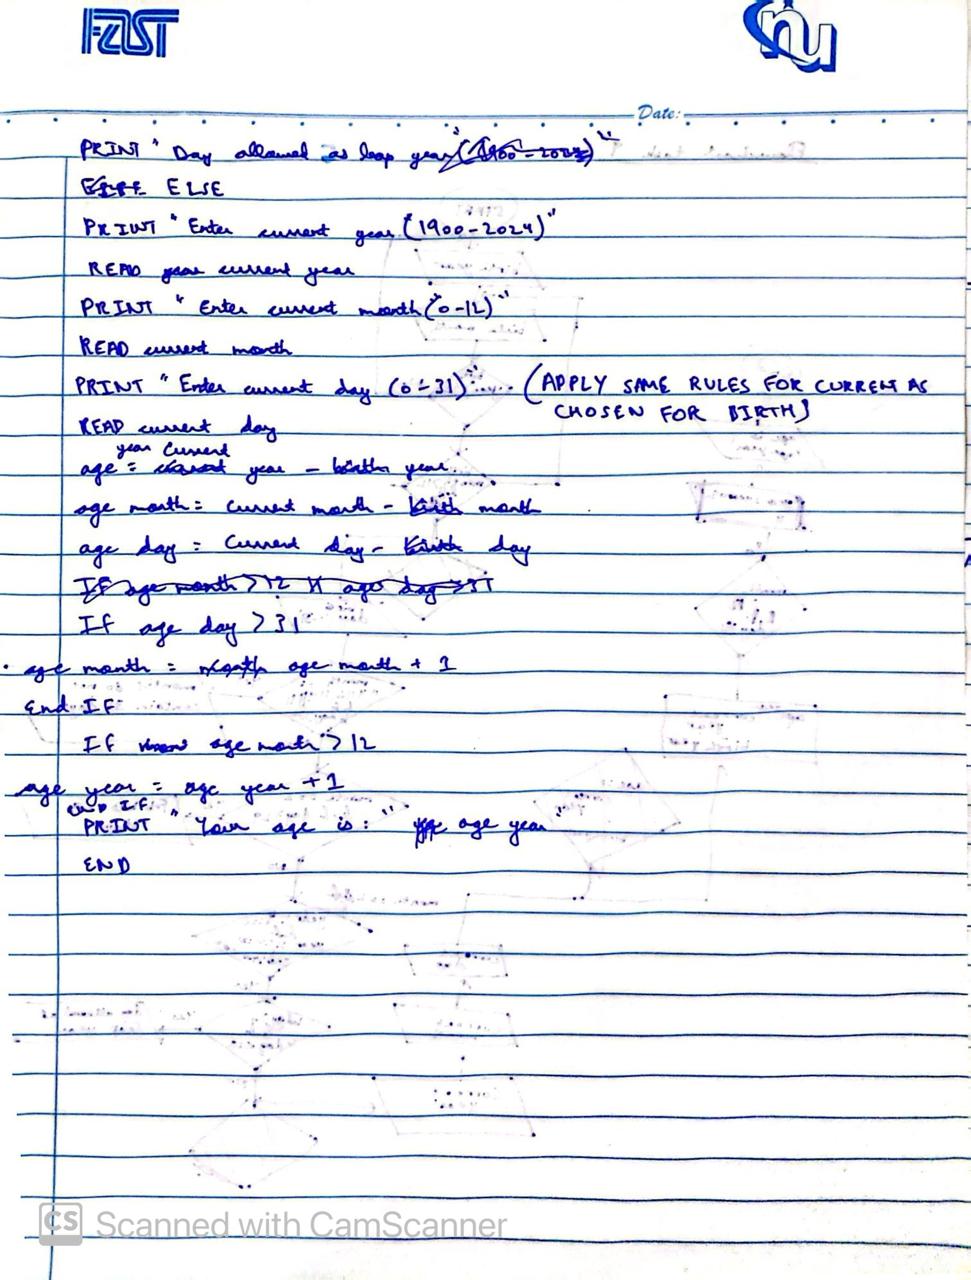 FAST
nu
Date:
PRINT " Day allowed as leap year "
ELSE
PRINT " Enter current year (1900-2024)"
READ current year
PRINT " Enter current month (0-12)"
READ current month
PRINT " Enter current day (0-31)" (APPLY SAME RULES FOR CURRENT AS
CHOSEN FOR BIRTH)
READ current day
age year = Current year - birth year
age month = Current month - birth month
age day = Current day - birth day
If age month > 12 age day > 31
If age day > 31
age month = age month + 1
End IF
If age month > 12
age year = age year + 1
END IF
PRINT " Your age is: " age year "
END
CS Scanned with CamScanner